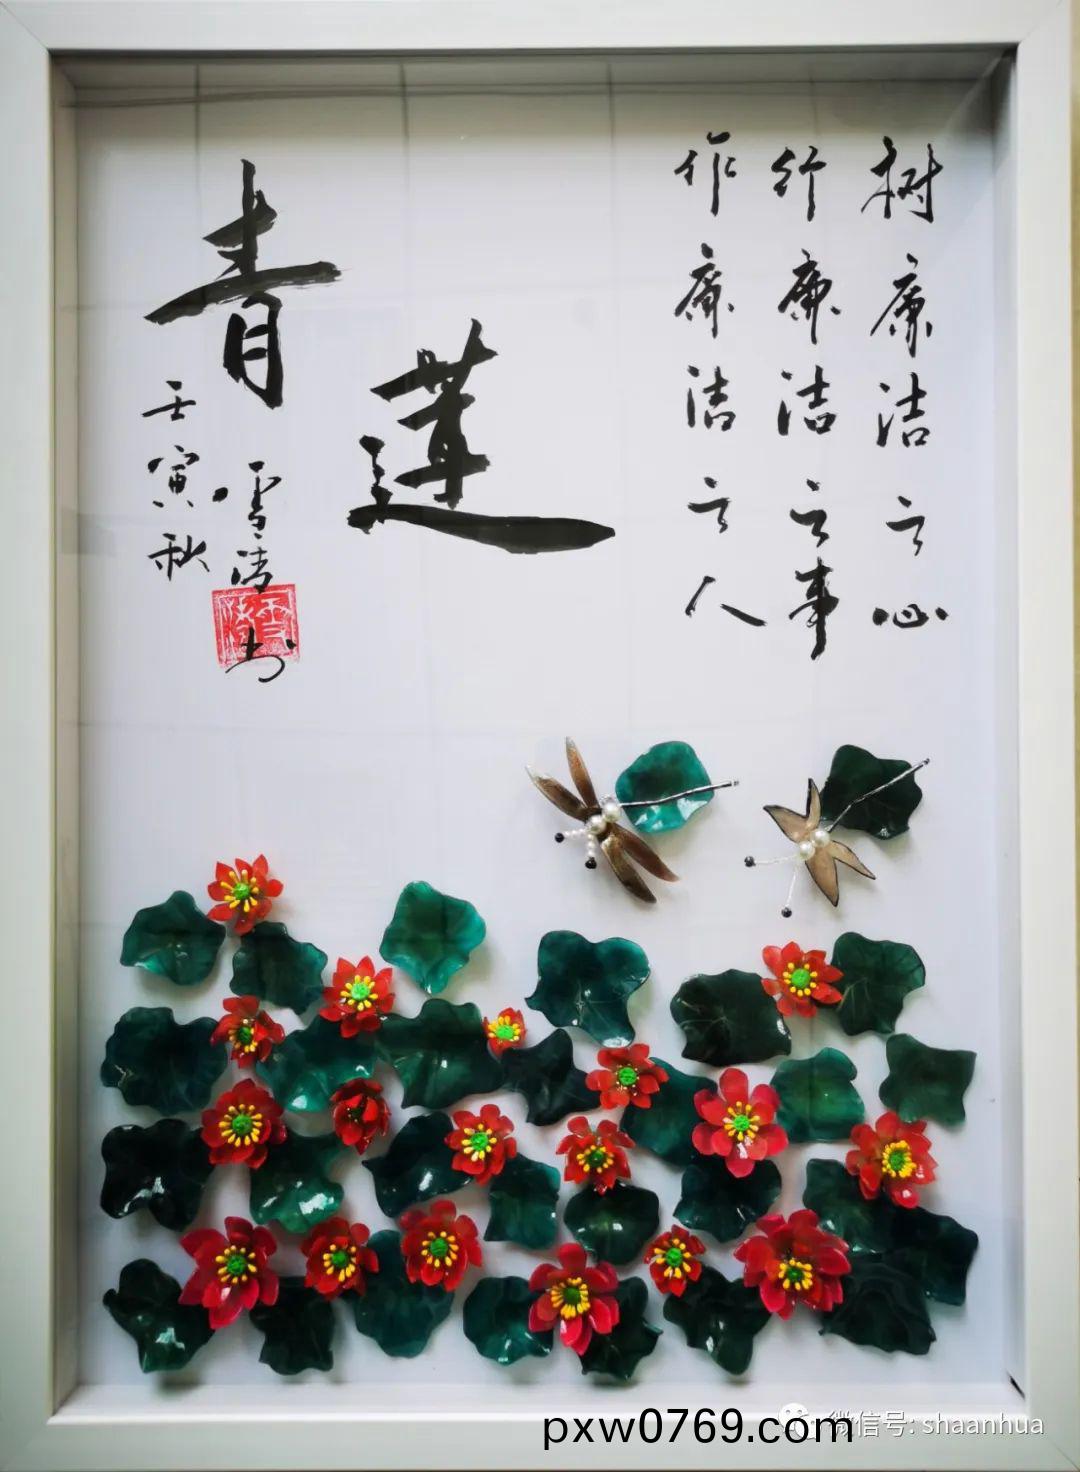 树廉洁之心
行廉洁之事
作廉洁之人
青莲
壬寅秋
雪洁书
pxw0769.com
微信号: shaanhua